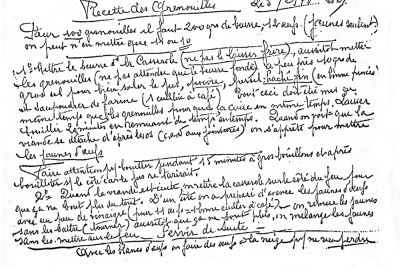 Recette des Grenouilles
Pour 100 grenouilles il faut 200 grs de beurre, 12 œufs (jaunes seulement)
on peut n'en mettre que 11 ou 10
1° Mettre le beurre ds la casserole (ne pas le laisser frire), aussitôt mettre
les grenouilles (ne pas attendre que le beurre fonde) à peu près 10 grs de
gros sel pour bien saler le jus, poivre, persil haché fin (en bonne pincée)
et saupoudrer de farine (1 cuillère à café) Tout ceci doit être mis en
même temps que les grenouilles pour que ça cuise en même temps. Laisser
bouillir 20 minutes en remuant de temps en temps. Quand on voit que la
viande se détache d'après les os (cas aux jointures) on s'apprête pour mettre
les jaunes d'œufs
Faire attention pr bouillir pendant 15 minutes à gros bouillons et après
bouilloter si le côté car le jus se tarirait.
2° Quand la viande est cuite, mettre la casserole sur le côté du feu pour
que ça ne bout plus du tout. D'un côté on a préparé d'avance les jaunes d'œufs
avec un peu de vinaigre (pour 11 œufs = 1 bonne cuillère à café) on remue les jaunes
sans les battre (tourner) aussitôt que ça ne bout plus, on mélange les jaunes
sans les mettre sur le feu Servir de suite =
Avec les blancs d'œufs on fait des œufs à la neige pr ne rien perdre